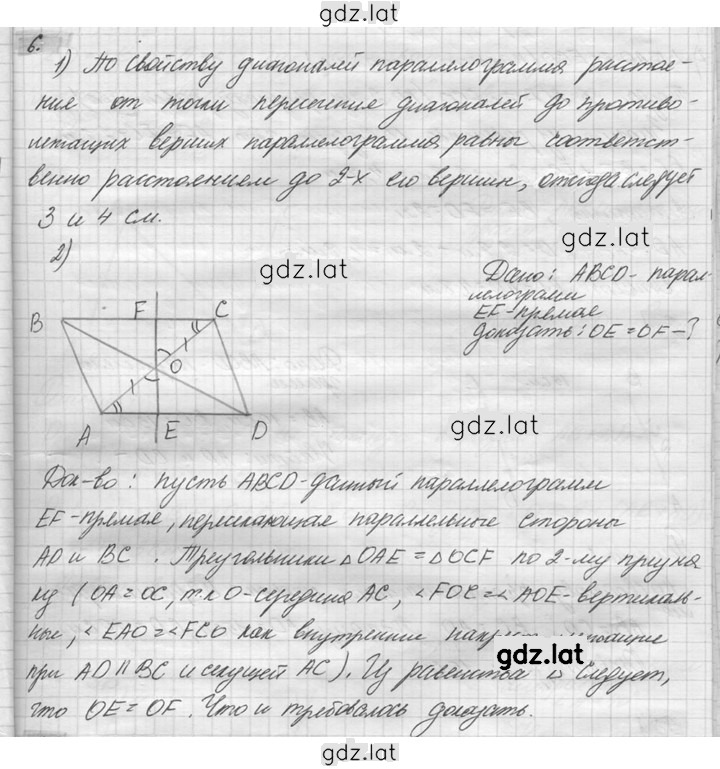 gdz.lat
6.
1) По свойству диагоналей параллелограмма расстоя-
ние от точки пересечение диагоналей до противо-
лежащих вершин параллелограмма равны соответст-
венно расстоянием до 2-х его вершин, отсюда следует
3 и 4 см.
2)
gdz.lat
gdz.lat
Дано: ABCD - парал-
лелограмм
EF-прямая
доказать: OE = OF - ?
B F C
O
A E D
gdz.lat
Док-во: пусть ABCD-данный параллелограмм
EF-прямая, пересекающая параллельные стороны
AD и BC. Треугольники △OAE = △OCF по 2-му призна
ку (OA=OC, т.к O-середина AC, ∠FOC=∠AOE-вертикаль-
ные, ∠EAO=∠FCO как внутренние лежащие
при AD || BC и секущей AC). Из равенства △ следует,
gdz.lat
что OE = OF. Что и требовалось доказать.
gdz.lat